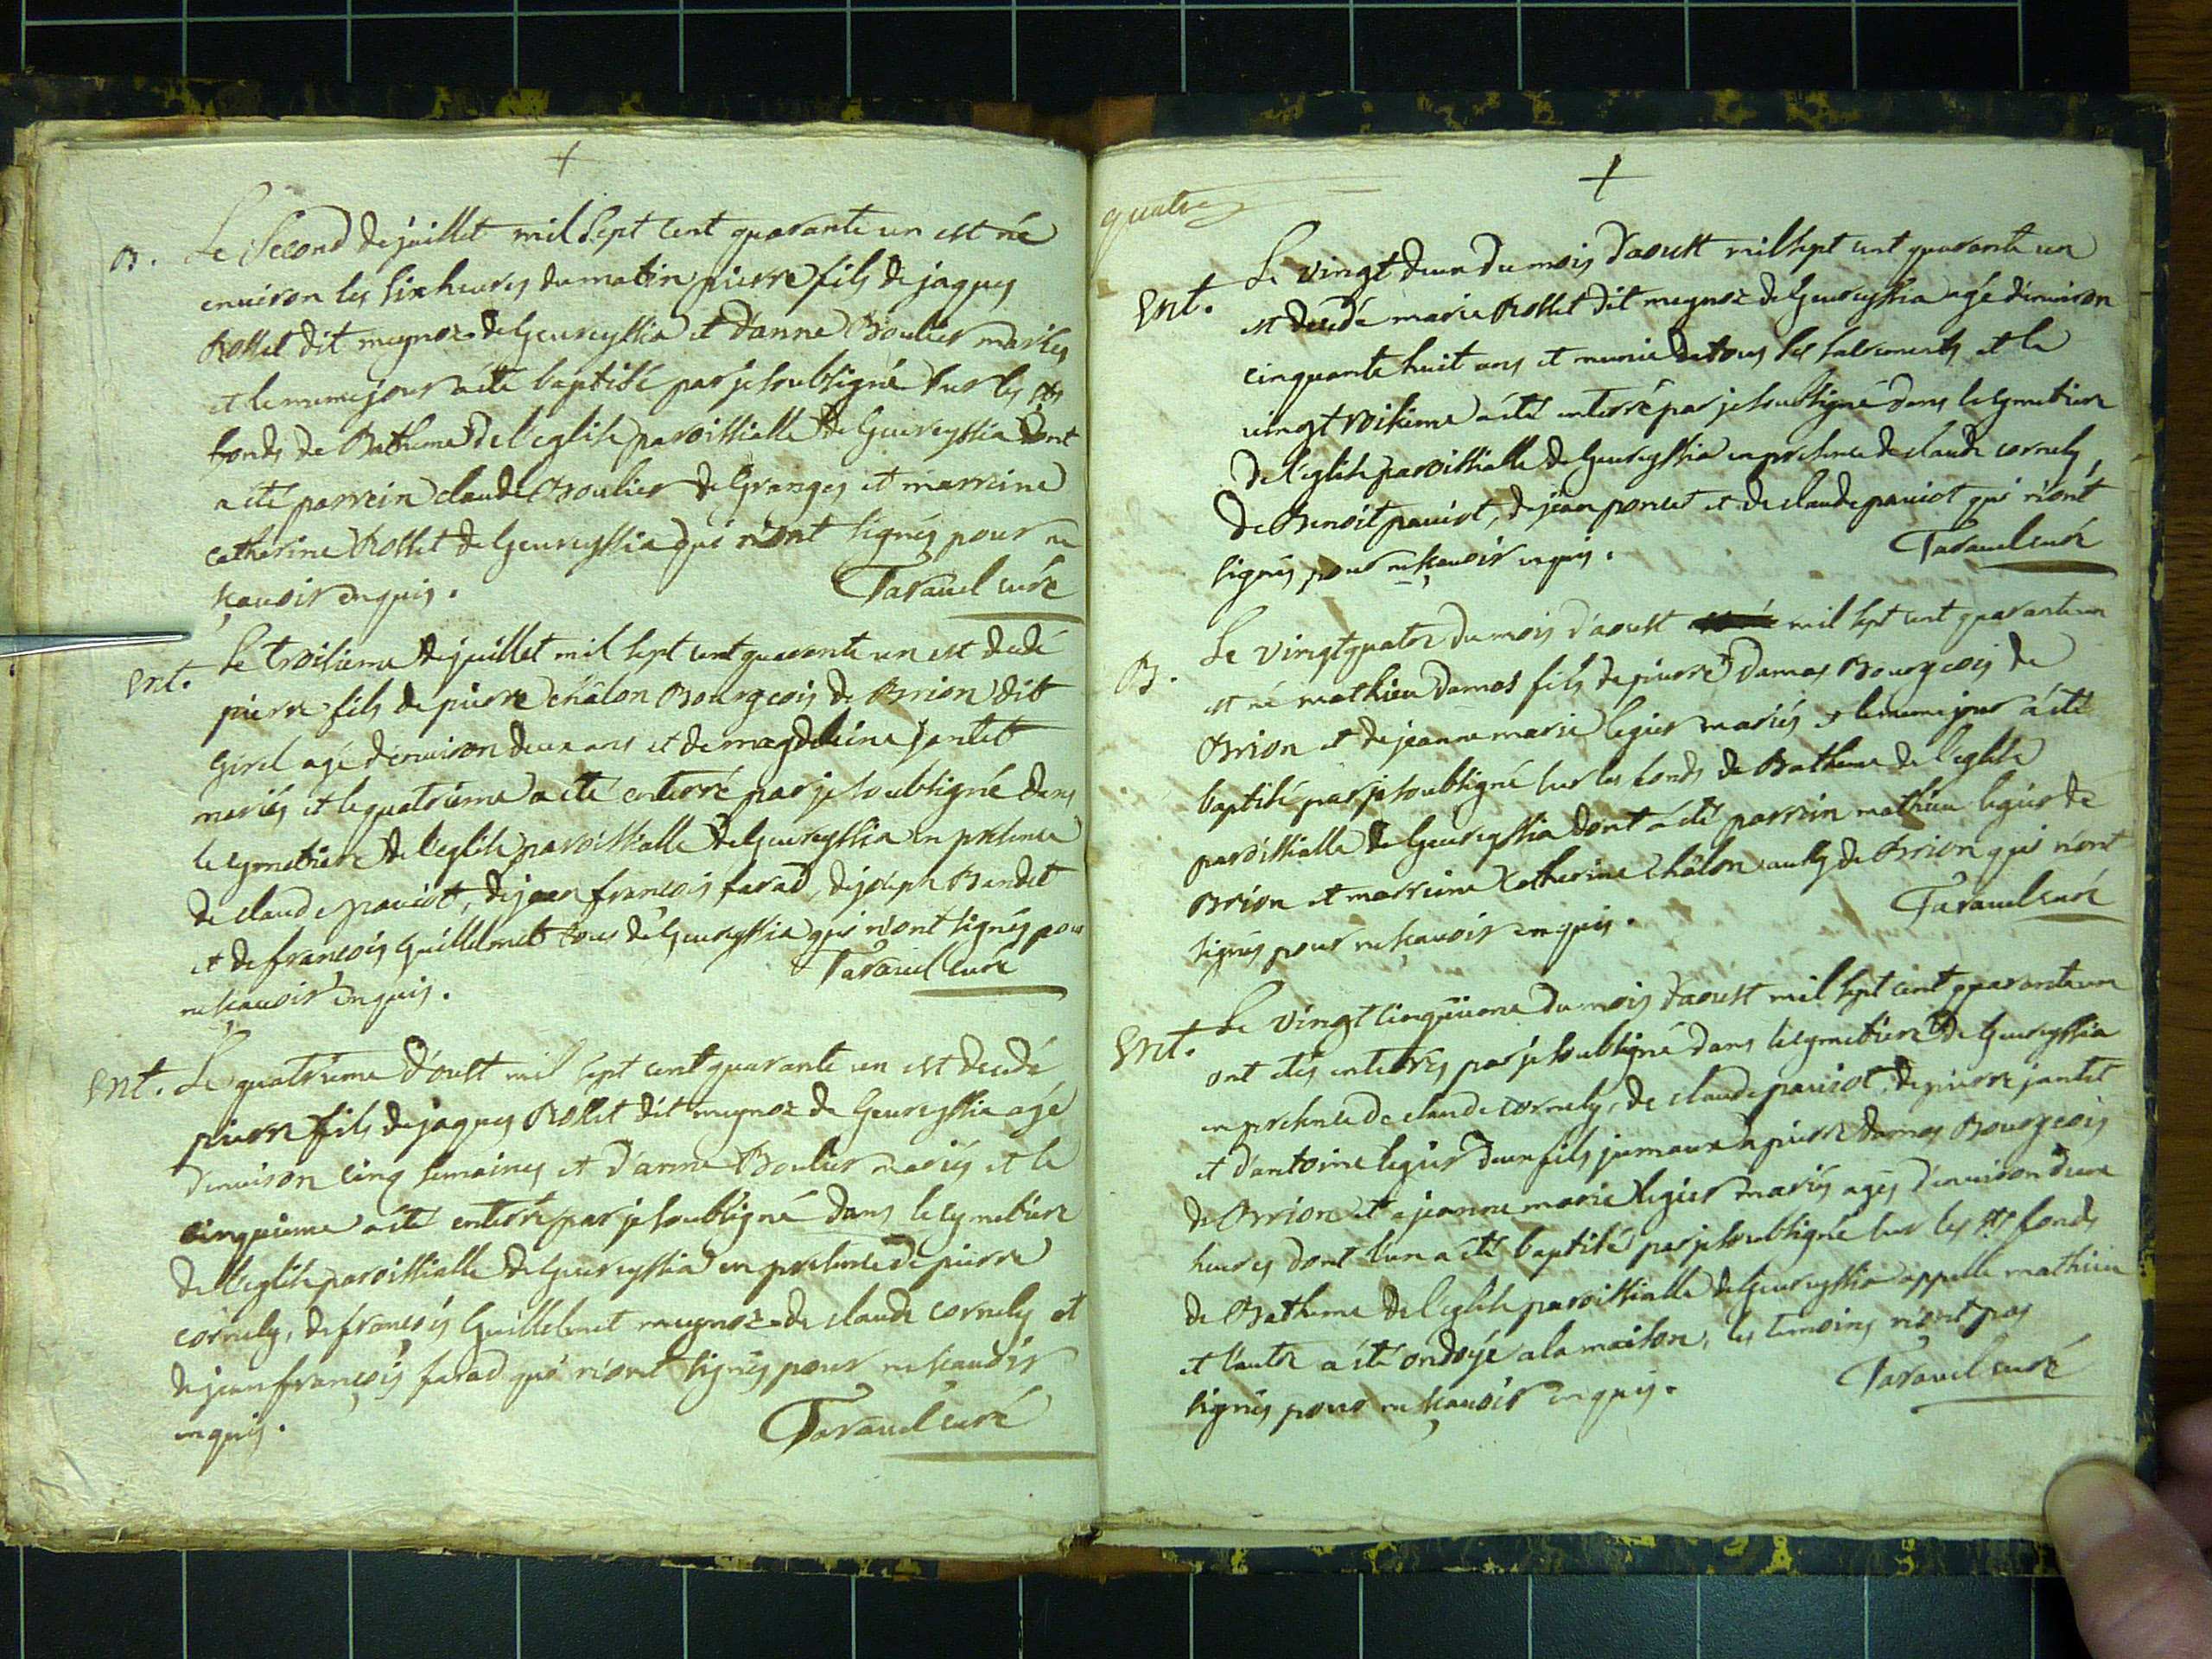 +
B. Le Second de juillet mil Sept Cent quarante un est né
environ les six heures du matin pierre fils de jaques
Rosset dit meynoz de Geureyssia et d'anne Boulier mariés
et le meme jour a été baptisé par je soubsigné sur les sts
fonds de Batheme de l'eglise paroissialle de Geureyssia dont
a été parrein claude Boulier de Granges et marreine
catherine Rosset de Geureyssia qui n'ont signés pour ne
sçauoir enquis. Tarauel curé
Ent. Le troisieme de juillet mil sept cent quarante un est decedé
pierre fils de pierre châlon Bourgeois de Brion dit
Girel agé d'enuiron deux ans et de magdeleine jantet
mariés et le quatrieme a été enterré par je soubsigné dans
le cymetiere de l'eglise paroissialle de Geureyssia en presence
de claude pauiot, de jean françois farad, de joseph Bandet
et de françois Guillelmet tous de Geureyssia qui n'ont signés pour
ne sçauoir enquis. Tarauel Curé
Ent. Le quatrieme d'oust mil sept cent quarante un est decedé
pierre fils de jaques Rosset dit meynoz de Geureyssia agé
d'enuiron cinq semaines et d'anne Boulier mariés et le
cinquieme a été enterré par je soubsigné dans le cymetiere
de l'eglise paroissialle de Geureyssia en presence de pierre
cornely, de françois Guillelmet meynoz de claude cornely et
de jean françois farad qui n'ont signés pour ne sçauoir
enquis. Tarauel curé
quatre
+
Ent. Le vingt deux du mois d'aoust mil sept cent quarante un
est decedé marie Rosset dit meynoz de Geureyssia agé d'enuiron
cinquante huit ans et munie de tous les sacrements et le
vingt troisieme a été enterré par je soubsigné dans le cymetiere
de l'eglise paroissialle de Geureyssia en presence de claude cornely,
de Benoit pauiot, de jean poncet et de claude pauiot qui n'ont
signés pour ne sçauoir enquis. Tarauel curé
B. Le vingtquatre du mois d'aoust mil sept cent quarante un
est né mathieu damas fils de pierre Damas Bourgeois de
Brion et de jeanne marie legier mariés et le meme jour a été
baptisé par je soubsigné sur les fonds de Batheme de l'eglise
paroissialle de Geureyssia dont a été parrein mathieu legier de
Brion et marreine Catherine Châlon aussy de Brion qui n'ont
signés pour ne sçauoir enquis. Tarauel curé
Ent. Le vingt cinquieme du mois d'aoust mil sept cent quarante un
ont étés enterrés par je soubsigné dans le cymetiere de Geureyssia
en presence de claude cornely, de claude pauiot, de pierre jantet
et d'antoine legier deux fils jumaux a pierre damas Bourgeois
de Brion et a jeanne marie legier mariés agés d'enuiron deux
heures dont l'un a été baptisé par je soubsigné sur les sts fonds
de Batheme de l'eglise paroissialle de Geureyssia appellé mathieu
et l'autre a été ondoyé a la maison, les temoins n'ont pas
signés pour ne sçauoir enquis. Tarauel curé